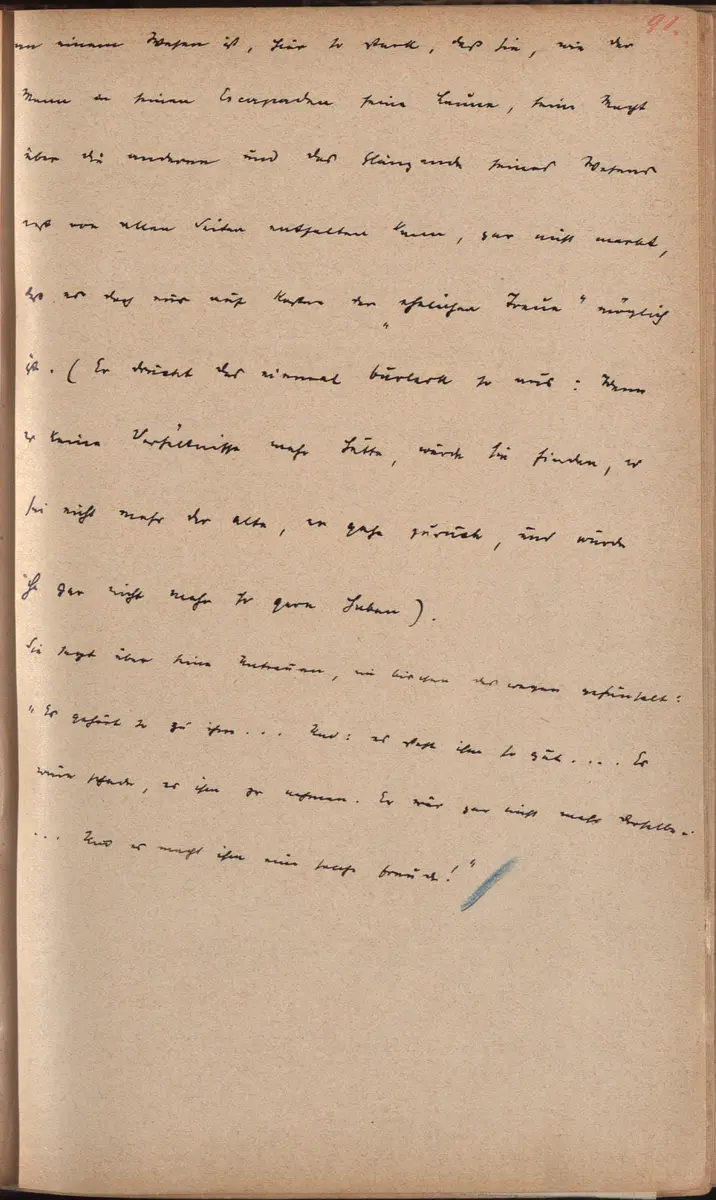 91.
an einem Wesen ist, hier so stark, daß sie, wie der
Mann in seinen Escapaden seine Laune, seine Macht
über die anderen und das Glänzende seines Wesens
erst von allen Seiten entfalten kann, gar nicht merkt,
daß es doch nur auf Kosten der „ehelichen Treue" möglich
ist. (Er drückt das einmal burlesk so aus: Wenn
er keine Verhältnisse mehr hätte, würde sie finden, er
sei nicht mehr der alte, er gehe zurück, und würde
ihn gar nicht mehr so gern haben).
Sie sagt über seine Untreuen, ein bischen deswegen gehänselt:
„Es gehört so zu ihm... Und: es steht ihm so gut.... Es
wäre schade, es ihm zu nehmen. Er wär gar nicht mehr derselbe.
... Und es macht ihm eine solche Freude!"